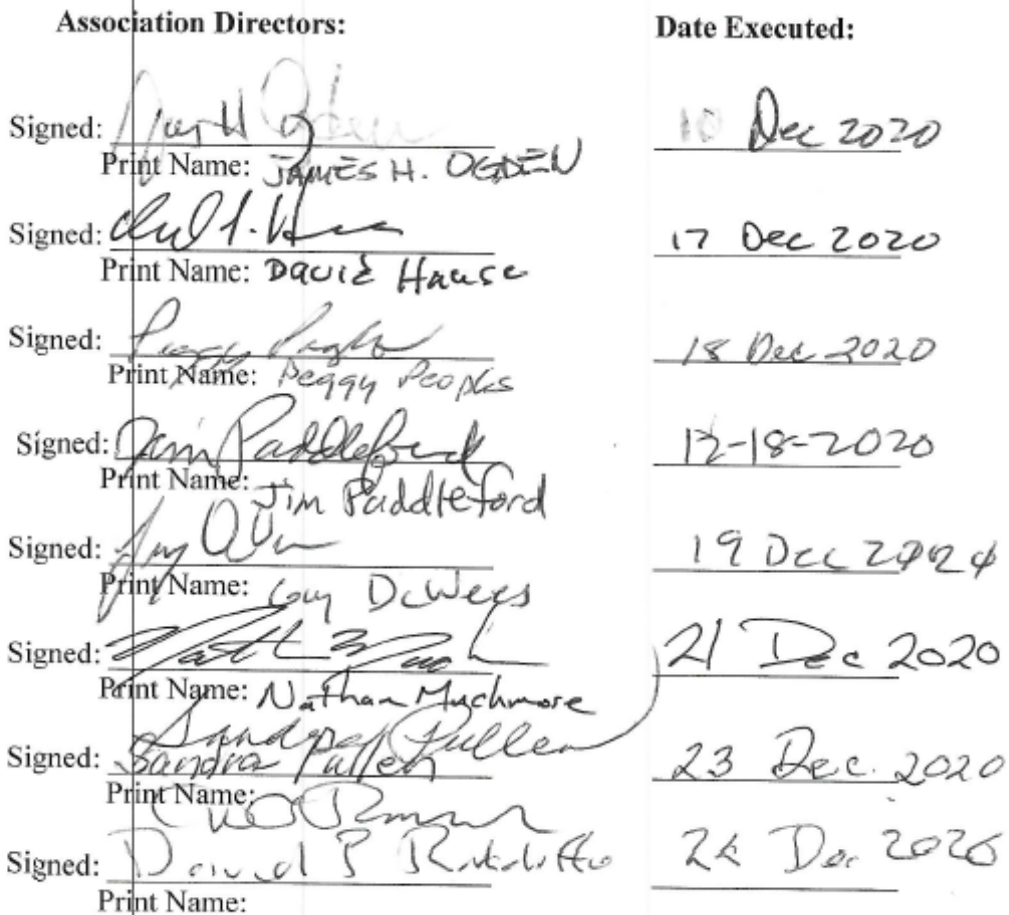 Association Directors: Date Executed:
Signed: 10 Dec 2020
Print Name: JAMES H. OGDEN
Signed: 17 Dec 2020
Print Name: David Hause
Signed: Peggy Peoples 18 Dec 2020
Print Name: Peggy Peoples
Signed: Jim Paddleford 12-18-2020
Print Name: Jim Paddleford
Signed: 19 Dec 2020
Print Name: Guy DeWees
Signed: 21 Dec 2020
Print Name: Nathan Muchmore
Sandra Pullen
Signed: Sandra Pullen 23 Dec. 2020
Print Name:
Signed: David Dec 2020
Print Name: